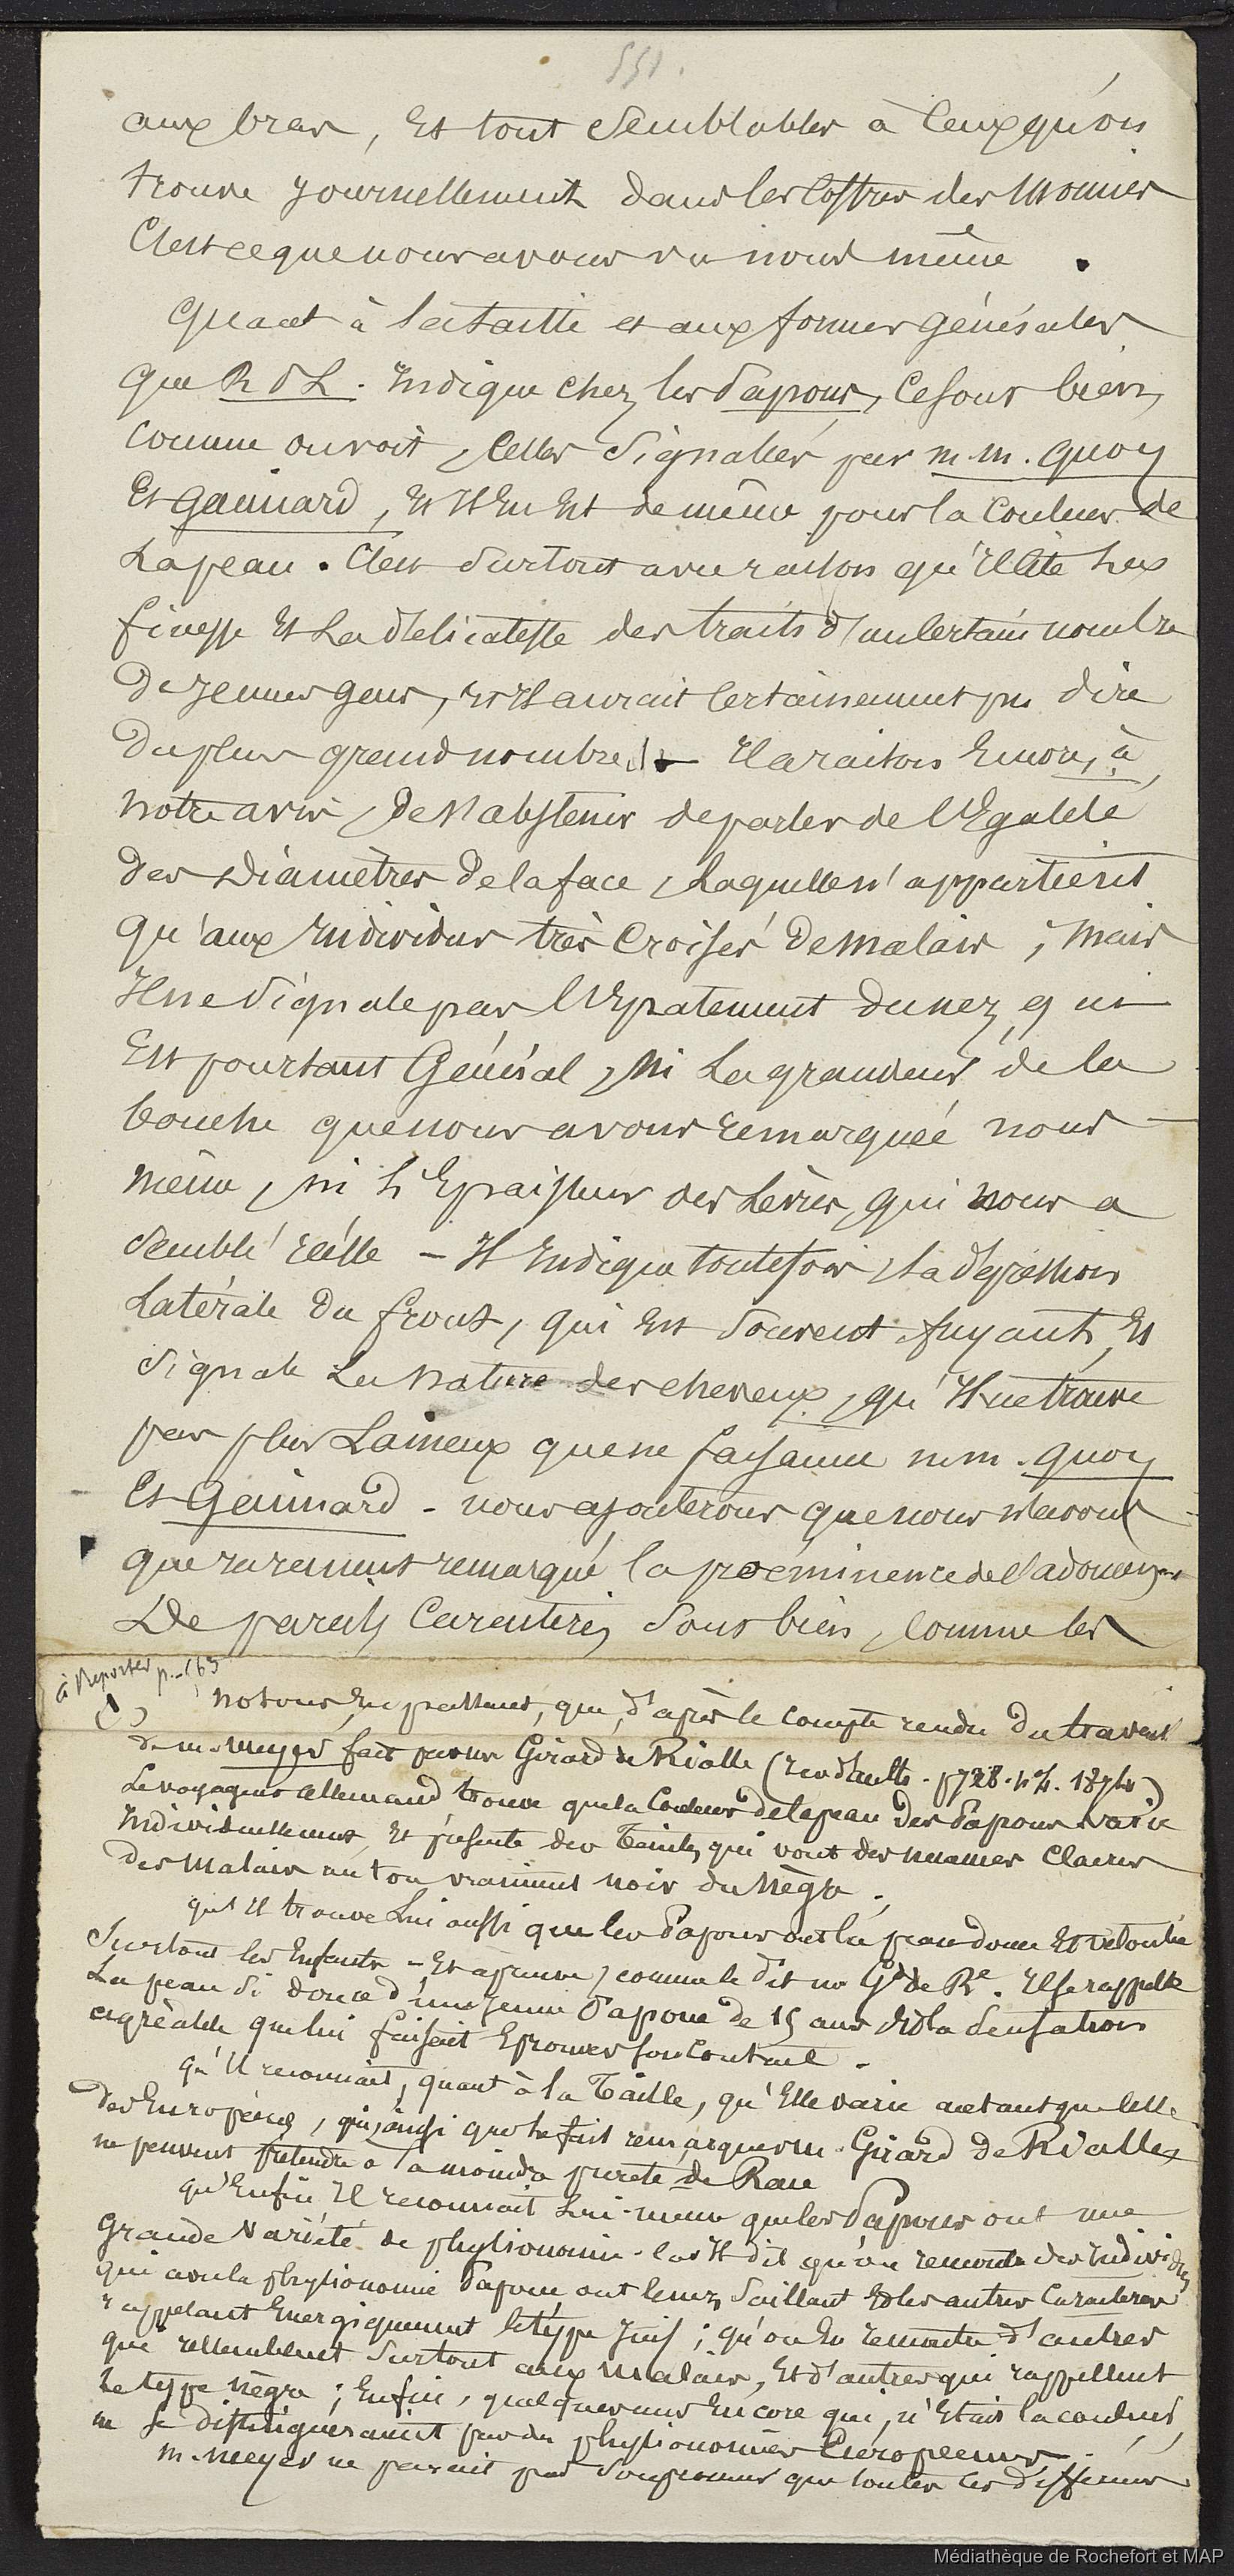 551.
aux bras, Et tout Semblables à Ceux qu'on
trouve journellement dans les Coffres des Momies
C'est ce que nous avons vu nous même .
Quant à la taille et aux formes générales
que R d L. Indique chez les Papous, Ce sont bien,
comme on voit, Celles Signalées par m.m. Quoy
Et Gaimard, Et Il En Est de même pour la Couleur de
La peau . C'est Surtout avec raison qu'Il Cite La
finesse Et La délicatesse des traits d'un Certain nombre
De jeunes gens, Et Il aurait Certainement pu dire
Du plus grand nombre. Il a raison Encore, à
notre avis, De S'abstenir de parler de l'Egalité
des Diamètres de la face, Laquelle n'appartient
Qu'aux Individus très Croisés De Malais ; Mais
Il ne Signale pas l'Epatement du nez, qui
Est pourtant Général, Ni La grandeur de la
bouche que nous avons remarquée nous
même, ni L'Epaisseur des Lèvres, qui nous a
Semblé réelle - Il Indique toutefois, La dépression
Latérale Du front, qui Est Souvent fuyant, Et
Signale La Nature des cheveux, qu'Il ne trouve
pas plus Laineux que ne faisaient m.m. Quoy
Et Gaimard - nous ajouterons que nous n'avons
que rarement remarqué la proéminence de l'abdomen
De pareils Caractères Sont bien, Comme les
à Reporter p. 163
Notons En passant, que, d'après le compte rendu Du travail
de m. Meyer fait par m. Girard de Rialle (rev d'anth. p 728. n° 4. 1874)
Le voyageur allemand trouve que la Couleur de la peau Des Papous varie
Individuellement, Et présente des Teintes qui vont des nuances Claires
Des Malais au ton vraiment noir du Nègre .
qu'Il trouve Lui aussi que les Papous ont la peau douce Et veloutée
Surtout les Enfants - Et à preuve, comme le dit m. Gd de Re. Il se rappelle
La peau Si douce d'une jeune Papoue de 15 ans Et la Sensation
agréable que lui faisait Eprouver son Contact .
qu'Il reconnait, quant à la Taille, qu'Elle varie autant que Celle
Des Européens, qui, ainsi que le fait remarquer m. Girard De Rialle,
ne peuvent prétendre à la moindre pureté de Race
qu'Enfin Il reconnait Lui-même que les Papous ont une
Grande Variété de physionomie. Car Il dit qu'on rencontre des Individus
qui avec la physionomie Papoue ont le nez Saillant Et les autres Caractères
rappelant Energiquement le type Juif ; qu'on En rencontre d'autres
qui ressemblent Surtout aux Malais, Et d'autres qui rappellent
Le type nègre ; Enfin, quelques uns Encore qui, n'Etait la couleur,
ne Se distingueraient pas des physionomies Européennes .
M. Meyer ne parait pas Soupçonner que toutes ces différences